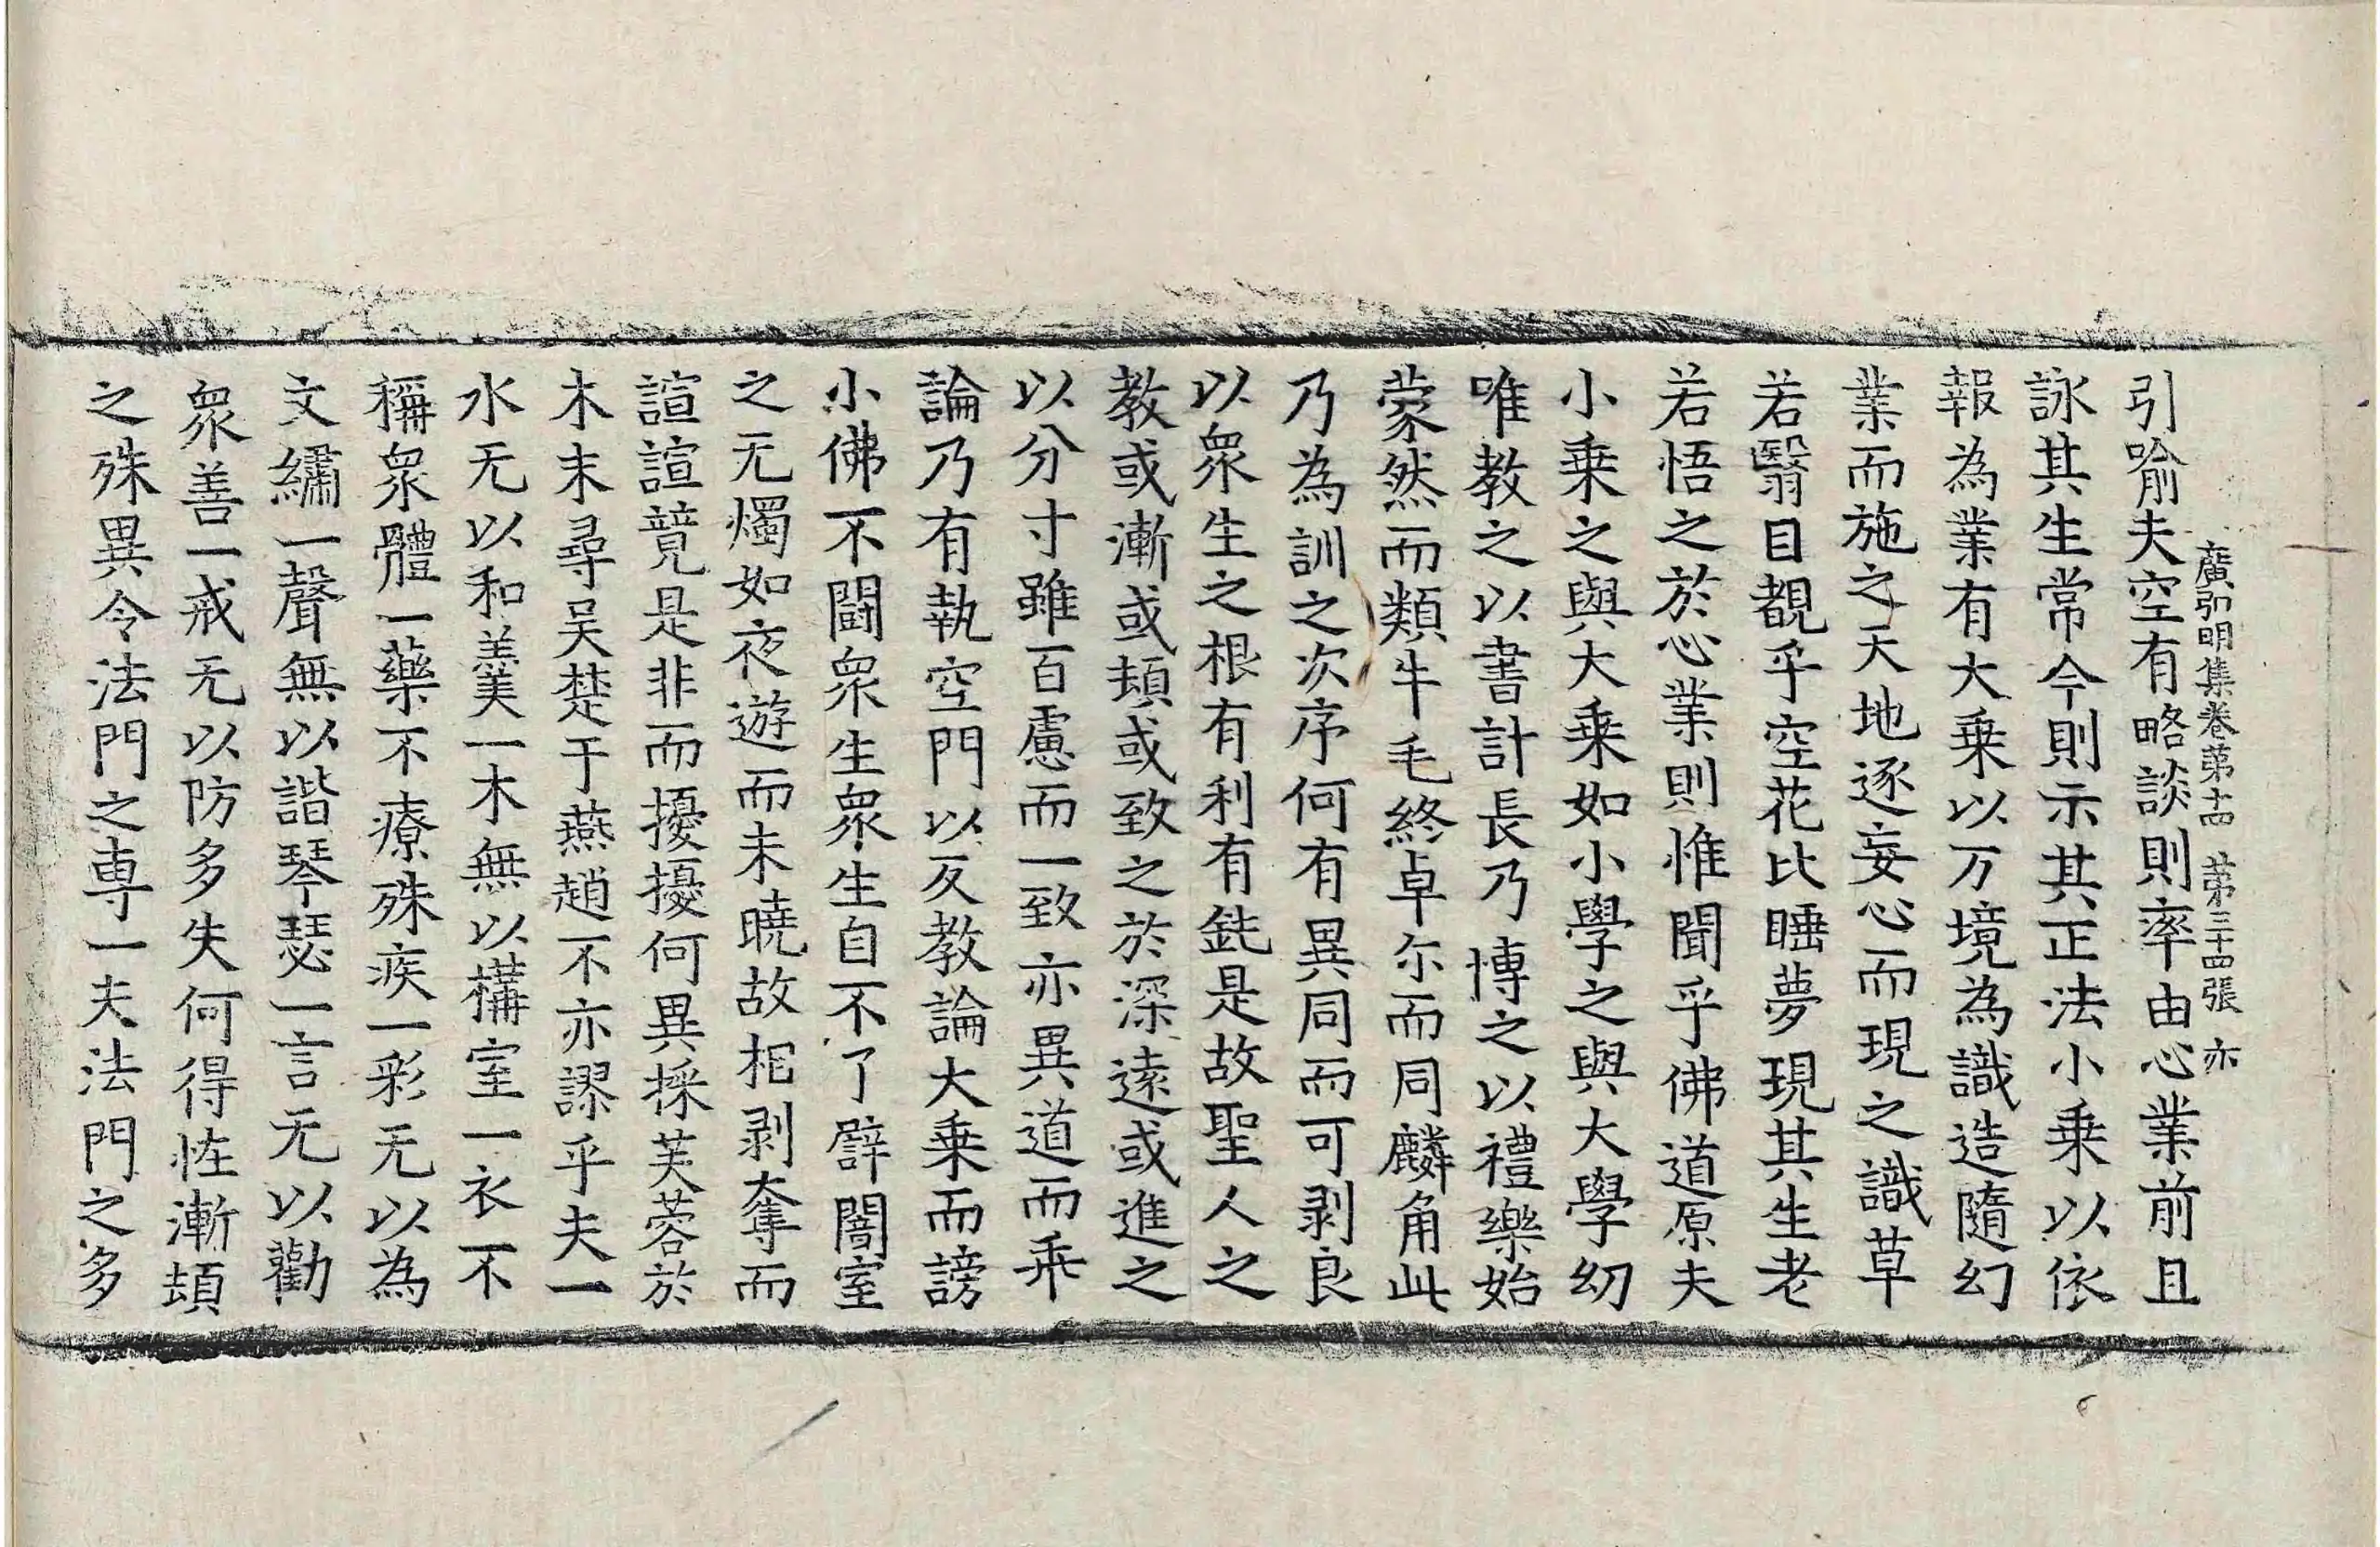 廣弘明集卷苐十四　苐三十四張　亦
引喻夫空有略談則率由心業前且
詠其生常今則示其正法小乗以依
報為業有大乗以万境為識造隨幻
業而施之天地逐妄心而現之識草
若翳目覩乎空花比睡夢現其生老
若悟之於心業則惟聞乎佛道原夫
小乗之與大乗如小學之與大學幼
唯教之以書計長乃博之以禮樂始
蒙然而類牛毛終卓尓而同麟角此
乃為訓之次序何有異同而可剥良
以衆生之根有利有鈍是故聖人之
教或漸或頓或致之於深遠或進之
以分寸雖百慮而一致亦異道而乖
論乃有執空門以反教論大乗而謗
小佛不鬪衆生衆生自不了辟闇室
之无燭如夜遊而未曉故相剥奪而
諠諠競是非而擾擾何異採芙蓉於
木末尋吴楚于燕趙不亦謬乎夫一
水无以和羹一木無以構室一衣不
稱衆體一藥不療殊疾一彩无以為
文繡一聲無以諧琴瑟一言无以勸
衆善一戒无以防多失何得恠漸頓
之殊異令法門之專一夫法門之多